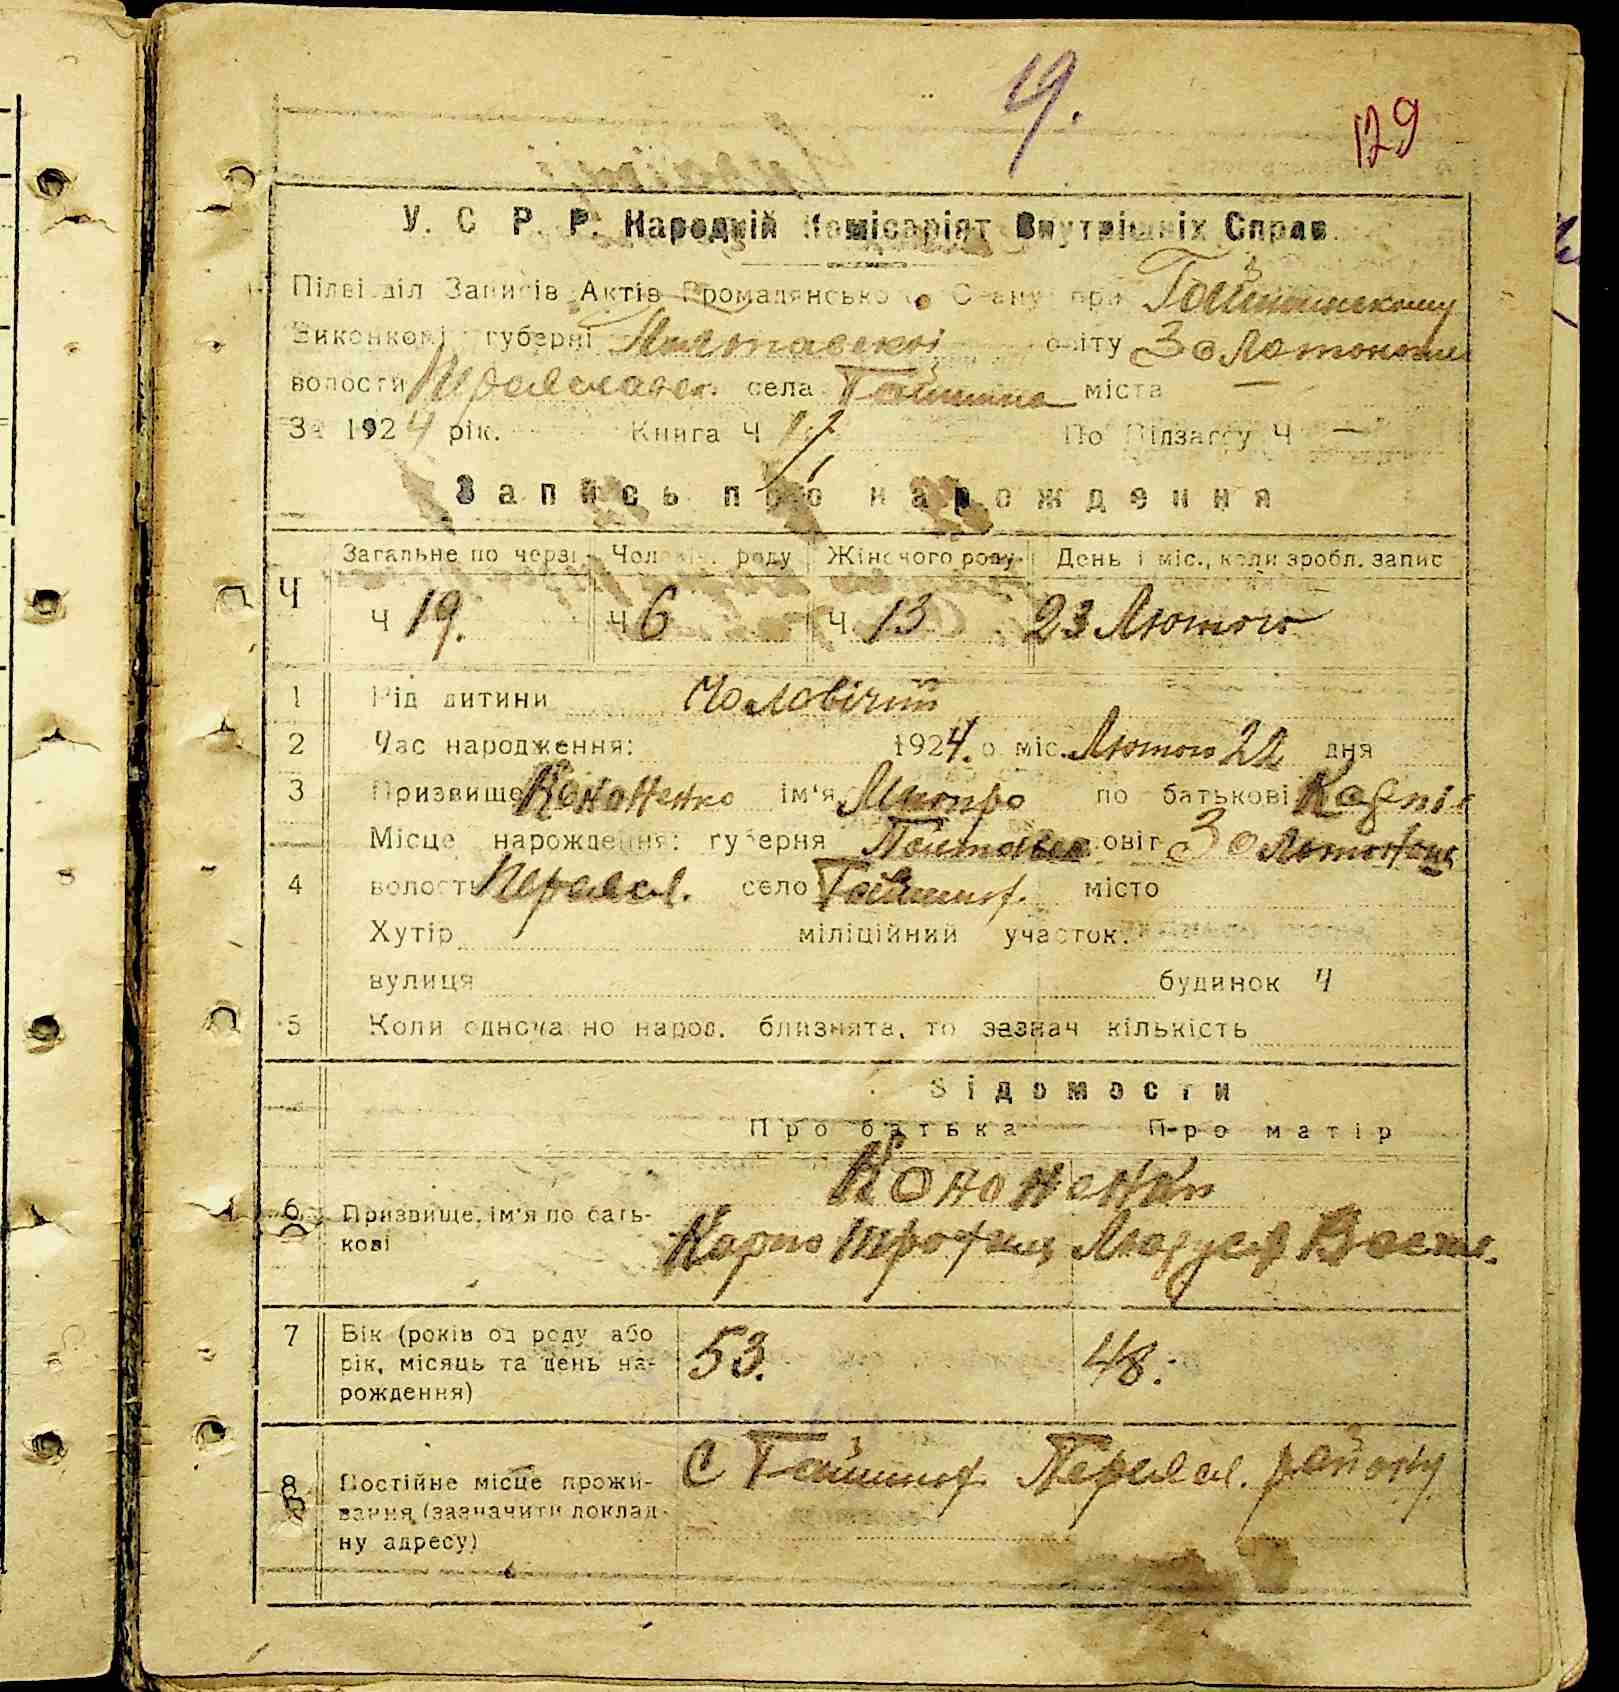 19.
129
У. С. Р. Р. Народній Комісаріят Внутрішніх Справ
Підвідділ Записів Актів Громадянського Стану при Гайшинському
Виконкомі губерні Полтавскої повіту Золотоноше
волости Переяславск. села Гайшина міста —
За 1924 рік. Книга Ч По Підзагсу Ч —
Запись про нарождення
Загальне по черзі Чоловіч. роду Жіночого роду День і міс., коли зробл. запис
Ч Ч 19. Ч 6 Ч. 13 23 Лютого
1 Рід дитини Чоловічий
2 Час народження: 1924. о міс. Лютого 22 дня
3 Призвище Кононенко ім'я по батькові
Місце нарождення: губерня повіт
4 волость Переясл. село Гайшин. місто
Хутір міліційний участок.
вулиця будинок Ч
5 Коли одночасно народ. близнята, то зазнач кількість
Відомости
Про батька Про матір
Кононенки
6 Призвище, ім'я по бать-
кові
Карпо Трофим
7 Вік (років од роду або
рік, місяць та день на-
рождення)
53. 48.
8 Постійне місце прожи-
вання (зазначити доклад-
ну адресу)
С Гайшин Переясл. району